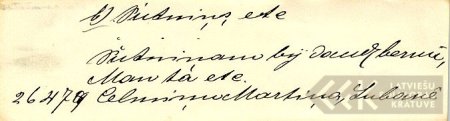 b) Putniņš, etc
Putniņam bij daudz bērnu,
Man tā etc.
26479 Celmiņu Mārtiņa, Lubanē
LATVIEŠU
KRĀTUVE